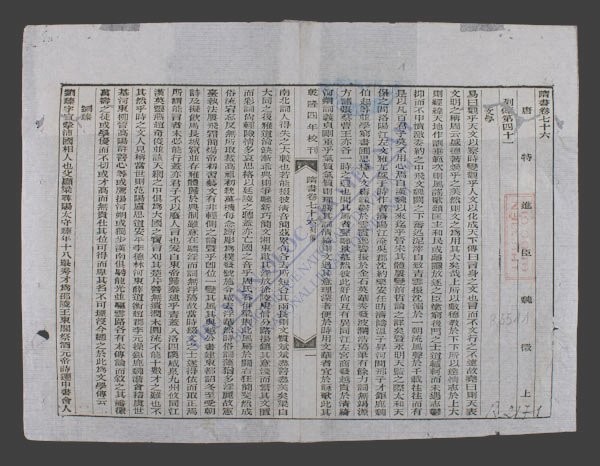 隋書卷七十六
唐 特 進 臣 魏 徵 上
列傳第四十一
文學
易曰觀乎天文以察時變觀乎人文以化成天下傳曰言身之文也言而不文行之不遠故堯曰則天表
文明之稱周云盛德著煥乎之美然則文之為用其大矣哉上所以敷德教於下下所以達情志於上大
則經緯天地作訓垂範次則風謠歌頌匡主和民或離讒放逐之臣塗窮後門之士道轗軻而未遇志鬱
抑而不申憤激委約之中飛文魏闕之下奮迅泥滓自致青雲振沈溺於一朝流風聲於千載往往而有
是以凡百君子莫不用心焉自漢魏以來迄乎晉宋其體屢變前哲論之詳矣暨永明天監之際太和天
保之間洛陽江左文雅尤盛于時作者濟陽江淹吳郡沈約樂安任昉濟陰溫子昇河間邢子才鉅鹿魏
伯起等並學窮書圃思極人文縟綵鬱於雲霞逸響振於金石英華秀發波瀾浩蕩筆有餘力詞無竭源
方諸張蔡曹王亦各一時之選也聞其風者聲馳景慕然彼此好尚互有異同江左宮商發越貴於清綺
河朔詞義貞剛重乎氣質氣質則理勝其詞清綺則文過其意理深者便於時用文華者宜於詠歌此其
乾隆四年校刊 隋書卷七十六 列傳 一
南北詞人得失之大較也若能掇彼清音簡茲累句各去所短合其兩長則文質斌斌盡善盡美矣梁自
大同之後雅道淪缺漸乖典則爭馳新巧簡文湘東啟其淫放徐陵庾信分路揚鑣其意淺而繁其文匿
而彩詞尚輕險情多哀思格以延陵之聽蓋亦亡國之音乎周氏吞併梁荊此風扇於關右狂簡斐然成
俗流宕忘反無所取裁高祖初統萬機每念斲彫為樸發號施令咸去浮華然時俗詞藻猶多淫麗故憲
臺執法屢飛霜簡煬帝初習藝文有非輕側之論暨乎即位一變其風其與越公書建東都詔冬至受朝
詩及擬飲馬長城窟並存雅體歸於典制雖意在驕淫而詞無浮蕩故當時綴文之士遂得依而取正焉
所謂能言者未必能行蓋亦君子不以人廢言也爰自東帝歸秦逮乎青蓋入洛四隩咸暨九州攸同江
漢英靈燕趙奇俊並該天網之中俱為大國之寶言刈其楚片善無遺潤木圓流不能十數才之難也不
其然乎時之文人見稱當世則范陽盧思道安平李德林河東薛道衡趙郡李元操鉅鹿魏澹會稽虞世
基河東柳䛒高陽許善心等或鷹揚河朔或獨步漢南俱騁龍光並驅雲路各有本傳論而敘之其潘徽
萬壽之徒或學優而不切或才高而無貴仕其位可得而卑其名不可堙沒今總之於此為文學傳云
劉臻
劉臻字宣摯沛國相人也父顯梁尋陽太守臻年十八舉秀才為邵陵王東閣祭酒元帝時遷中書舍人